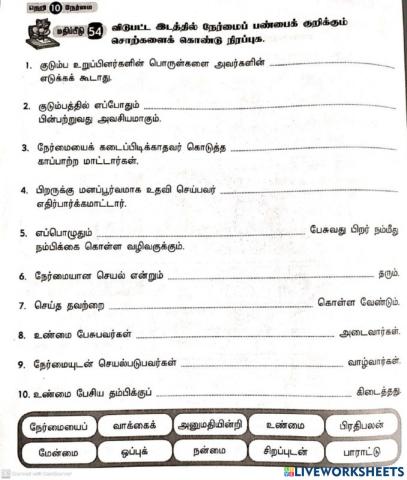 நெறி 10 நேர்மை
மதிப்பீடு 54 விடுபட்ட இடத்தில் நேர்மைப் பண்பைக் குறிக்கும்
சொற்களைக் கொண்டு நிரப்புக.
1. குடும்ப உறுப்பினர்களின் பொருள்களை அவர்களின்
எடுக்கக் கூடாது.
2. குடும்பத்தில் எப்போதும்
பின்பற்றுவது அவசியமாகும்.
3. நேர்மையைக் கடைப்பிடிக்காதவர் கொடுத்த
காப்பாற்ற மாட்டார்கள்.
4. பிறருக்கு மனப்பூர்வமாக உதவி செய்பவர்
எதிர்பார்க்கமாட்டார்.
5. எப்பொழுதும் பேசுவது பிறர் நம்மீது
நம்பிக்கை கொள்ள வழிவகுக்கும்.
6. நேர்மையான செயல் என்றும் தரும்.
7. செய்த தவற்றை கொள்ள வேண்டும்.
8. உண்மை பேசுபவர்கள் அடைவார்கள்.
9. நேர்மையுடன் செயல்படுபவர்கள் வாழ்வார்கள்.
10. உண்மை பேசிய தம்பிக்குப் கிடைத்தது.
நேர்மையைப் வாக்கைக் அனுமதியின்றி உண்மை பிரதிபலன்
மேன்மை ஒப்புக் நன்மை சிறப்புடன் பாராட்டு
Scanned with CamScanner
LIVEWORKSHEETS